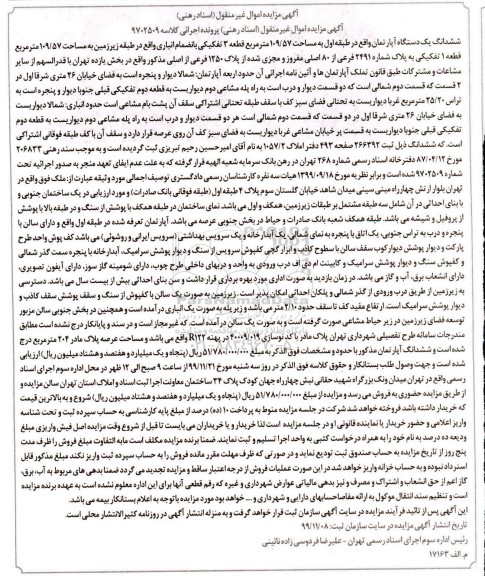 آگهی مزایده اموال غیر منقول (اسناد رهنی)
آگهی مزایده اموال غیر منقول (اسناد رهنی) پرونده اجرائی کلاسه ۹۷۰۲۵۰۹
ششدانگ یک دستگاه آپارتمان واقع در طبقه اول به مساحت ۱۰۹/۵۷ مترمربع قطعه ۳ تفکیکی بانضمام انباری واقع در طبقه زیرزمین به مساحت ۱۰۹/۵۷ مترمربع
قطعه ۱ تفکیکی به پلاک شماره ۲۴۹۱ فرعی از ۸۰ اصلی مفروز و مجزی شده از پلاک ۱۲۵۰ فرعی از اصلی مذکور واقع در بخش یازده تهران با قدرالسهم از سایر
مشاعات و مشترکات طبق قانون تملک آپارتمان ها و آئین نامه اجرائی آن حدود اربعه آپارتمان: شمالا دیوار و پنجره است به فضای خیابان ۲۶ متری شرقا اول در
۲ قسمت که قسمت دوم شمالی است که دو قسمت دیوار و درب است به راه پله مشاعی دوم دیواریست به قطعه دوم تفکیکی قبلی جنوبا دیوار و پنجره است به
تراس ۲۵/۲۰ مترمربع غربا دیواریست به تحتانی فضای سبز کف با سقف طبقه تحتانی اشتراکی سقف آن پشت بام مشاعی است حدود انباری: شمالا دیواریست
به فضای خیابان ۲۶ متری شرقا اول در دو قسمت که قسمت دوم شمالی است هر دو قسمت دیوار و درب است به راه پله مشاعی دوم دیواریست به قطعه دوم
تفکیکی قبلی جنوبا دیواریست به قسمت پر خیابان مشاعی غربا دیواریست به فضای سبز کف آن روی عرصه قرار دارد و سقف آن با کف طبقه فوقانی اشتراکی
است، که ششدانگ ذیل ثبت ۲۶۶۳۹۲ صفحه ۴۹۳ دفتر املاک ۱۰۵۷/۲ به نام آقای امیرحسین رحیم تبریزی ثبت گردیده است و به موجب سند رهنی ۲۰۶۸۳۳
مورخ ۸۷/۰۴/۱۲ دفترخانه اسناد رسمی شماره ۲۶۸ تهران در رهن بانک سرمایه شعبه الهیه قرار گرفته که به علت عدم ایفای تعهد منجر به صدور اجرائیه تحت
شماره ۹۷۰۲۵۰۹ شده است و برابر نظریه مورخ ۱۳۹۹/۰۹/۱۸ هیات سه نفره کارشناسان رسمی دادگستری توصیف اجمالی مورد وثیقه عبارت از: ملک فوق واقع در
تهران بلوار ارتش چهارراه مینی سیتی میدان شاهد خیابان گلستان سوم پلاک ۴ طبقه اول (طبقه فوقانی بانک صادرات) و مورد ارزیابی در یک ساختمان جنوبی و
با بنای احداثی در آن شامل سه طبقه مشتمل بر طبقات زیرزمین، همکف و اول می باشد. نمای ساختمان در طبقه همکف با پوشش از سنگ و در طبقه بالا با پوشش
از پروفیل و شیشه می باشد. طبقه همکف شعبه بانک صادرات و حیاط در بخش جنوبی عرصه می باشد. آپارتمان تعرفه شده در طبقه اول واقع و دارای سالن با
پنجره و درب به تراس جنوبی، یک اتاق با پنجره به نمای شمالی یک آبدارخانه و یک سرویس بهداشتی (سرویس ایرانی و روشویی) می باشد کف پوش واحد طرح
پارکت و دیوار پوشش دیوار کوب سقف سالن با سطوح کاذب و ابزار گچی کفپوش سرویس از سنگ و دیوار پوشش سرامیک، آبدارخانه با پنجره سمت گذر شمالی
و کفپوش سنگ و دیوار پوشش سرامیک و کابینت ام دی اف درب ورودی به واحد و دربهای داخلی طرح چوب، دارای شومینه گاز سوز، دارای آیفون تصویری،
دارای انشعاب برق، آب و گاز می باشد. در زمان بازدید به صورت اداری مورد بهره برداری قرار داشت و سن بنای احداثی بیش از بیست سال می باشد. دسترسی
به زیرزمین از طریق درب ورودی از گذر شمالی و پلکان احداثی امکان پذیر است. زیرزمین به صورت یک سالن با کفپوش از سنگ و سقف پوشش سقف کاذب و
دیوار پوشش سرامیک است. ارتفاع مفید کف تا سقف حدود ۲/۱۰ متر می باشد و زیر پله به صورت یک انباری در آمده است و همچنین در بخش جنوبی سالن مزبور
توسعه فضای زیرزمین در زیر حیاط مشاعی صورت گرفته است و به صورت یک سالن در آمده است، که غیر مجاز است و در سند و پایانکار درج نشده است مطابق
مندرجات سامانه طرح تفصیلی شهرداری تهران پلاک مادر با کد نوسازی ۲۰۰۰۹۰۱۹ در پهنه R۱۲۲ واقع می باشد و مساحت عرصه پلاک مادر ۲۰۴ مترمربع درج
شده است و ششدانگ آپارتمان مذکور با حدود و مشخصات فوق الذکر به مبلغ ۵۱/۷۸۰/۰۰۰/۰۰۰ ریال (پنجاه و یک میلیارد و هفتصد و هشتاد میلیون ریال) ارزیابی
شده است و جهت وصول طلب بستانکار و حقوق کلاسه فوق الذکر در روز سه شنبه مورخ ۹۹/۱۱/۲۱ از ساعت ۹ صبح الی ۱۲ ظهر در محل اداره سوم اجرای اسناد
رسمی واقع در تهران میدان ونک بزرگراه شهید حقانی نبش چهارراه جهان کودک پلاک ۲۴ ساختمان معاونت اجرا ثبت اسناد و املاک استان تهران سالن مزایده و
از طریق مزایده حضوری به فروش می رسد و مزایده از مبلغ ۵۱/۷۸۰/۰۰۰/۰۰۰ ریال (پنجاه و یک میلیارد و هفتصد و هشتاد میلیون ریال) شروع و به بالاترین قیمت
که خریدار داشته باشد فروخته خواهد شد شرکت در جلسه مزایده منوط به پرداخت ۱۰ (ده) درصد از مبلغ پایه کارشناسی به حساب سپرده ثبت و تحت شناسه
واریز اعلامی و حضور خریدار یا نماینده قانونی او در جلسه مزایده است لذا خریدار و یا خریداران می بایست تا قبل از شروع وقت مزایده اصل فیش واریزی مبلغ
ودیعه ده درصد به نام خود را به همراه درخواست کتبی به واحد اجرا تسلیم و ثبت نمایند. ضمنا برنده مزایده مکلف است مابه التفاوت مبلغ فروش را ظرف مدت
پنج روز از تاریخ مزایده به حساب صندوق ثبت تودیع نماید و در صورتی که ظرف مهلت مقرر مانده فروش را به حساب سپرده ثبت واریز نکند مبلغ مذکور قابل
استرداد نبوده و به حساب خزانه واریز خواهد شد در این صورت عملیات فروش از درجه اعتبار ساقط و مزایده تجدید می گردد ضمنا بدهی های مربوط به آب، برق،
گاز اعم از حق انشعاب و اشتراک و مصرف و نیز بدهی مالیاتی عوارض شهرداری و غیره که رقم قطعی آنها برای این اداره معلوم نشده است به عهده برنده مزایده
است و تنظیم سند انتقال موکول به ارائه مفاصاحسابهای دارایی و شهرداری و .... خواهد بود مورد مزایده با توجه به اعلام بستانکار بیمه می باشد.
این آگهی پس از تائید فرآیند مزایده در سایت آگهی سازمان ثبت قرار خواهد گرفت و به منزله انتشار آگهی در روزنامه کثیرالانتشار محلی است.
تاریخ انتشار آگهی مزایده در سایت سازمان ثبت: ۹۹/۱۱/۰۸
رئیس اداره سوم اجرای اسناد رسمی تهران - علیرضا فردوسی زاده نائینی
م. الف ۱۷۱۶۳